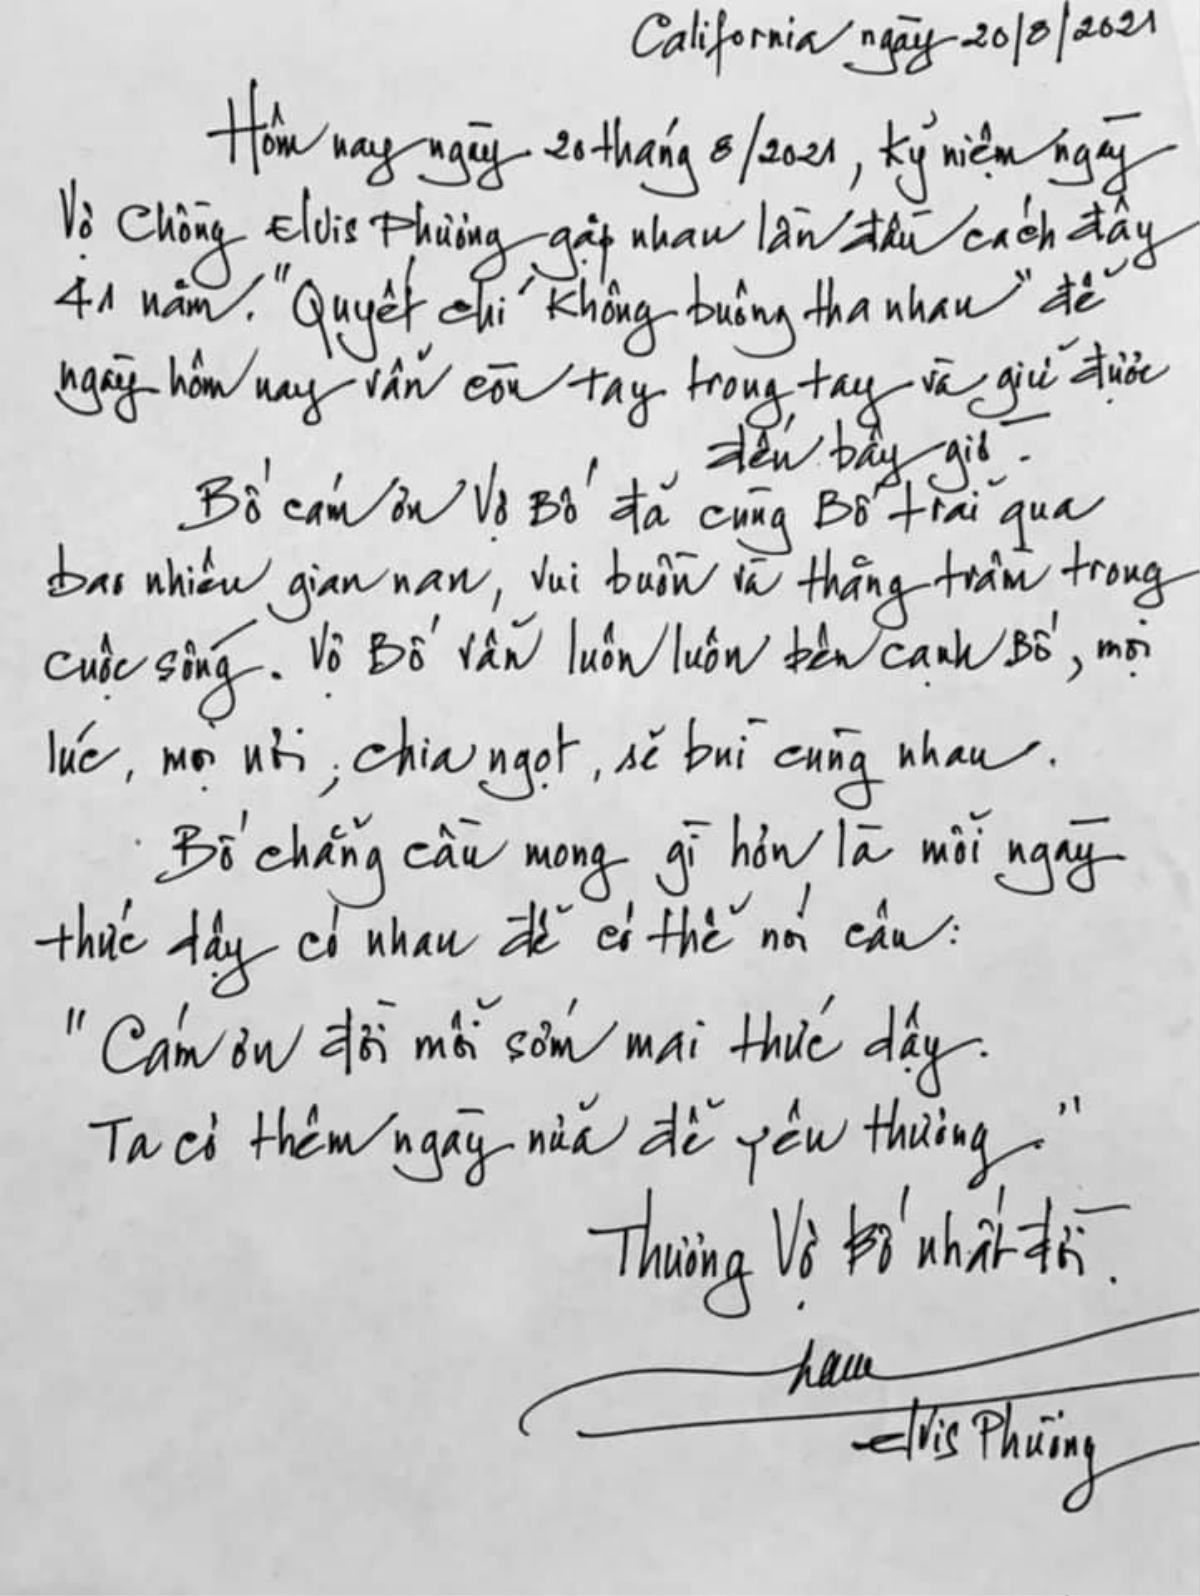 California ngày 20/8/2021
Hôm nay ngày 20 tháng 8/2021, kỷ niệm ngày
Vợ Chồng Elvis Phương gặp nhau lần đầu cách đây
41 năm. "Quyết chí không buông tha nhau" để
ngày hôm nay vẫn còn tay trong tay và giữ được
đến bây giờ.
Bố cám ơn Vợ Bố đã cùng Bố trải qua
bao nhiêu gian nan, vui buồn và thăng trầm trong
cuộc sống. Vợ Bố vẫn luôn luôn bên cạnh Bố, mọi
lúc, mọi nơi, chia ngọt, sẽ bùi cùng nhau.
Bố chẳng cầu mong gì hơn là mỗi ngày
thức dậy có nhau để có thể nói câu:
"Cám ơn đời mỗi sớm mai thức dậy.
Ta có thêm ngày nữa để yêu thương."
Thương Vợ Bố nhất đời.
Elvis Phương